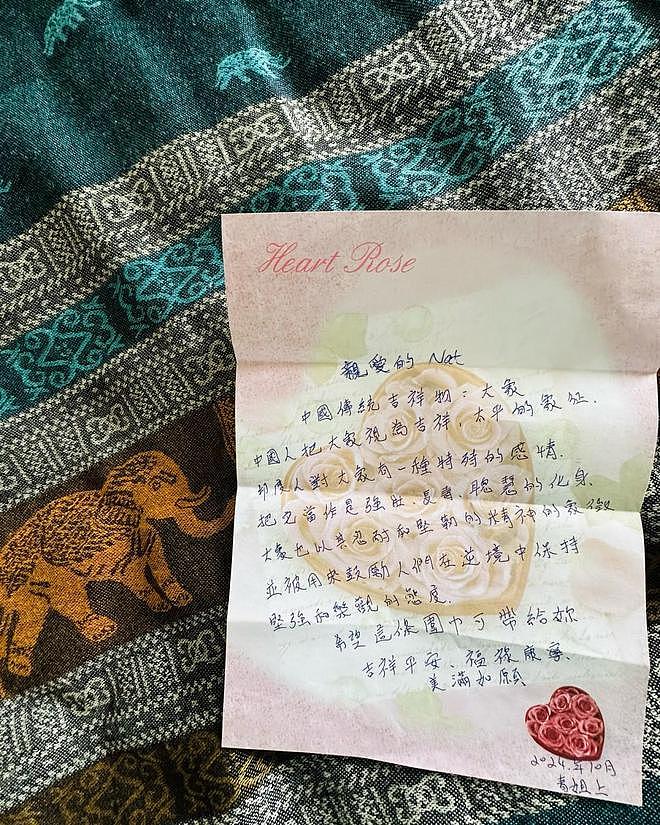 Heart Rose
親愛的 Nat
中國傳統吉祥物：大象
中國人把大象視為吉祥，太平的象征.
印度人對大象有一種特殊的感情.
把它當作是強壯、長壽、聰慧的化身.
大象也以其忍耐和堅韌的精神的象徵
並被用來鼓勵人們在逆境中保持
堅強和樂觀的態度.
希望這條圍巾可帶給妳
吉祥平安、福祿康寧、
美滿如願
2024.年10月
姐上